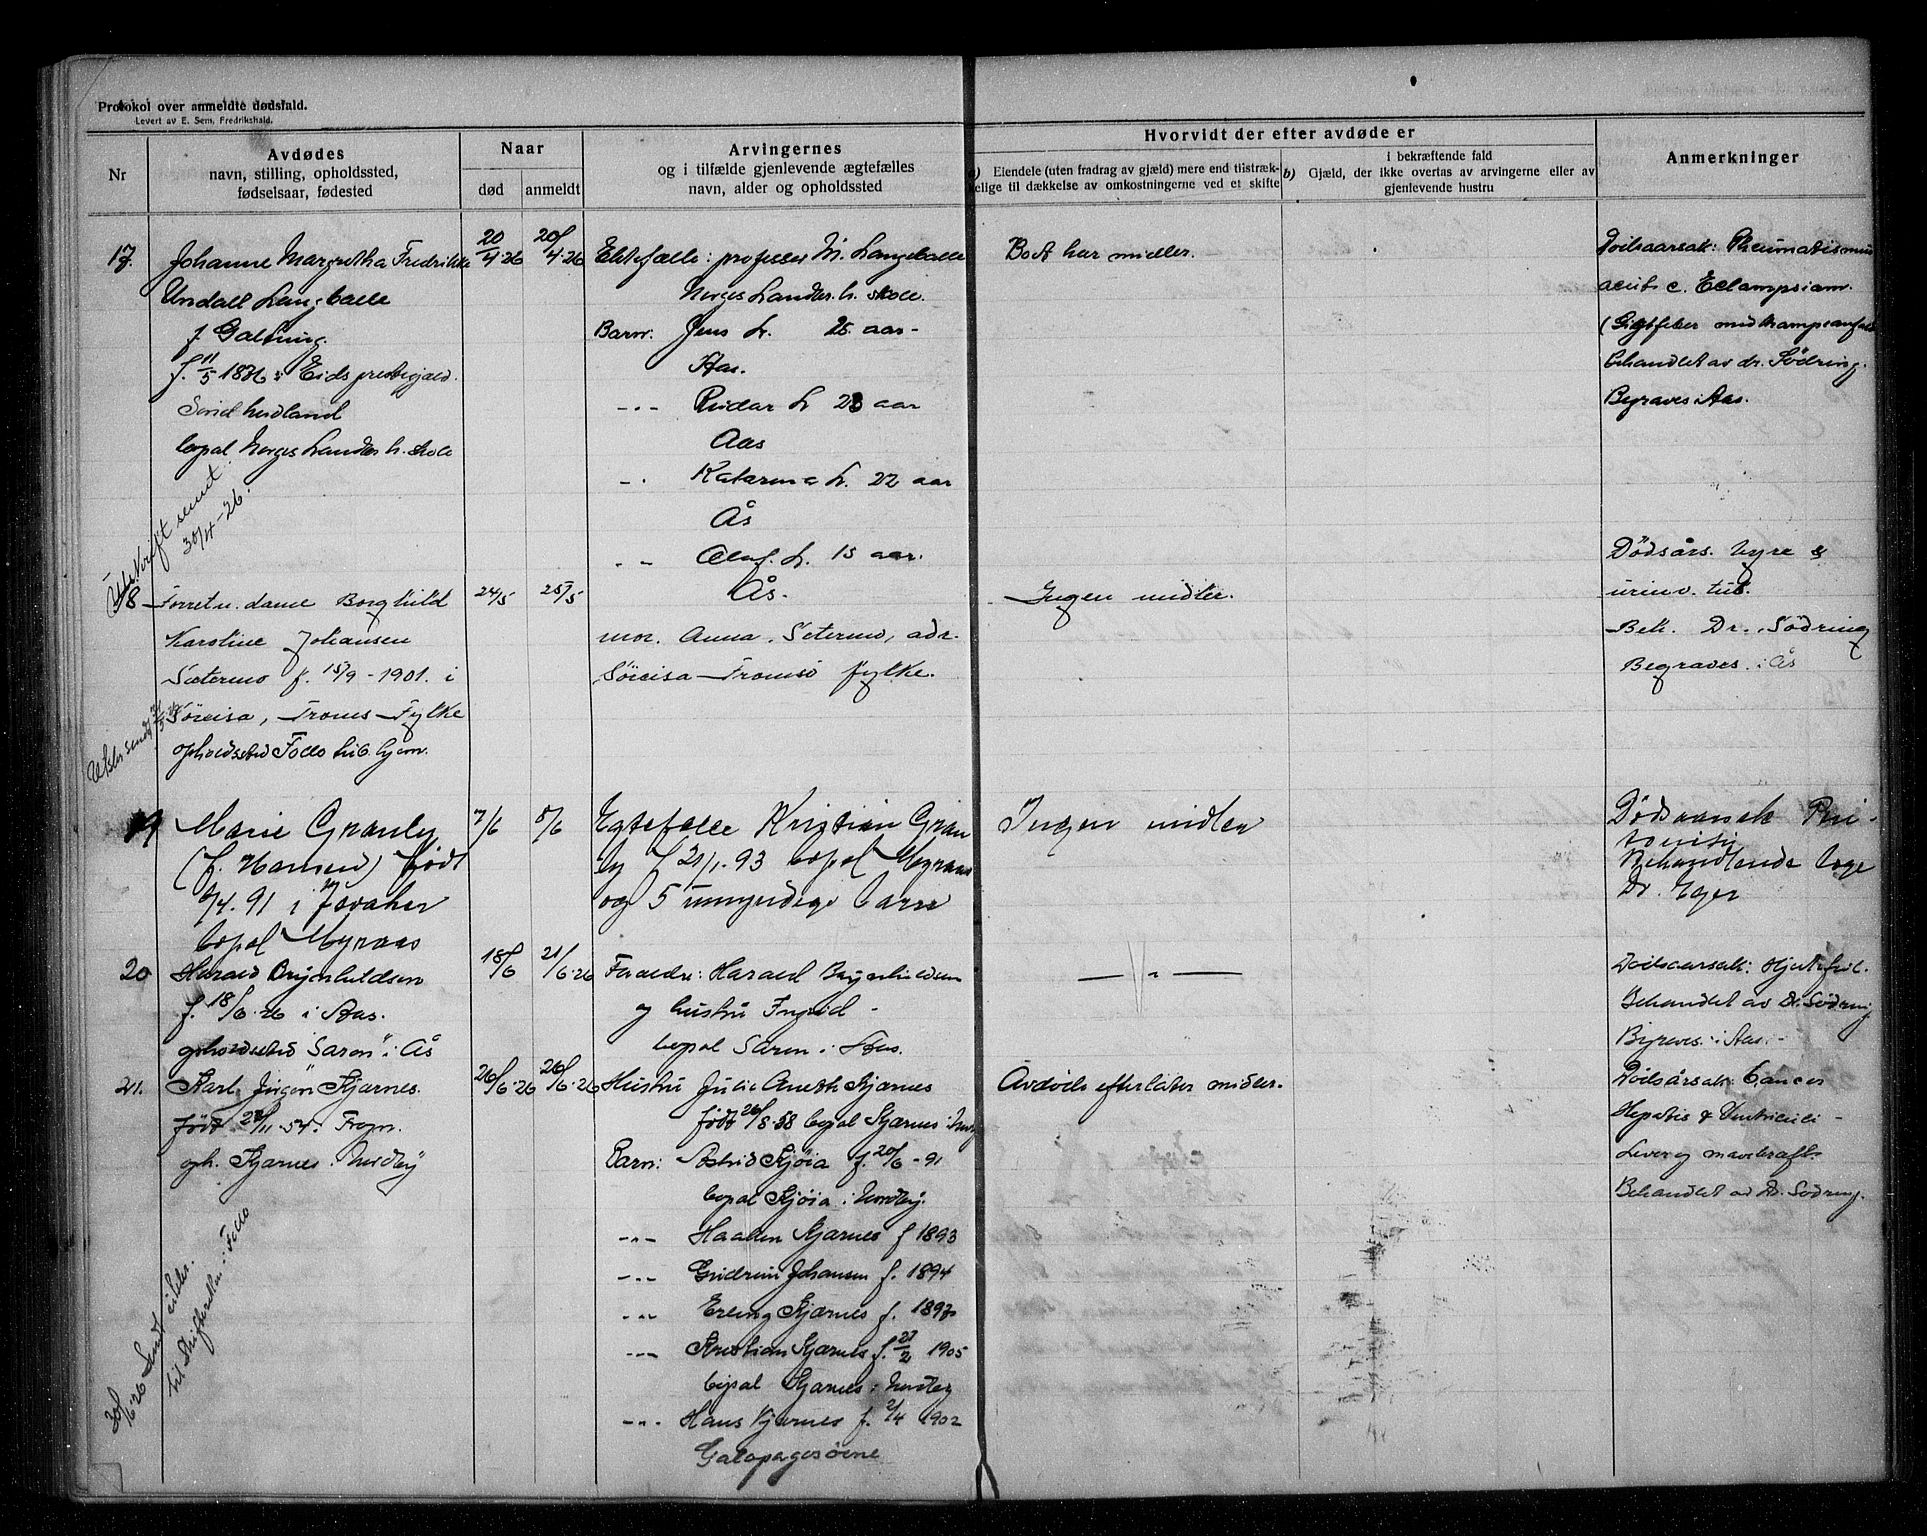 Protokol over anmeldte dødsfald.
Levert av E. Sem, Fredrikshald.
Nr
Avdødes
navn, stilling, opholdssted,
fødselsaar, fødested
Naar
død
anmeldt
Arvingernes
og i tilfælde gjenlevende ægtefælles
navn, alder og opholdssted
Hvorvidt der efter avdøde er
a) Eiendele (uten fradrag av gjæld) mere end tilstræk-
kelige til dækkelse av omkostningerne ved et skifte
i bekræftende fald
b) Gjæld, der ikke overtas av arvingerne eller av
gjenlevende hustru
Anmerkninger
17.
Johanne Margretha Fredrikke
Undall Langballe
f Galtung.
f. 11/5 1876 i Eids prestegjæld.
Søndhordland
bopal Norges Landbr. h. skole
20/4.26
20/4.26
Ektefælle: professor M. Langballe
Norges Landbr. h. skole.
Barn: Jens L. 25 aar -
Aas.
-"- Reidar L 23 aar
Aas
-"- Katarina L. 22 aar
Ås
-"- Oluf. L. 15 aar.
Ås.
Boet har midler.
Dødsaarsak: Rheumatismus
acut. c. Eclampsiam.
(Gigtfeber med krampeanfald
Behandlet av dr. Södring.
Begraves i Aas.
Utskrift sendt
30/4-26.
18
Forretn. dame Borghild
Karoline Johansen
Sæterno f. 15/9 - 1901. i
Söreisa, Troms - Fylke
opholdssted Follo tub. hjem.
24/5
25/5
mor. Anna. Seterno, adr.
Söreisa - Tromsö fylke.
Ingen midler.
Dödsårs. Nyre &
urinv. tub.
Beh. Dr. Södring
Begraves. i Ås
19
Marie Granly
(f. Hansen) født
/4.91 i Idvaker
bopal Myraas
7/6
8/6
Egtefælle Kristian Gran
ly f 21/1.93 bopal Myraas
og 5 umyndige barn
Ingen midler
Dødsaarsak Peri-
tonitis
Behandlende læge
Dr. Eger
20
Harald Brynhildsen
f. 18/6.26 i Aas.
opholdssted "Saron" i Ås
18/6
21/6.26
Foreldre: Harald Brynhildsen
og hustru Ingrid -
bopal Saron i Aas.
— " —
Dødsaarsak: Hjertefeil.
Behandlet av Dr. Södring
Begraves i Aas. -
21.
Karl Jörgen Kjærnes.
født 28/11.54. Frogn.
oph. Kjærnes i Nordby
26/6.26
26/6.26
Hustru Julie Aneth. Kjærnes
født 26/8.58 bopal Kjærnes i Nordby
Barn: Astrid Kjöia f. 20/6 - 91
bopal Kjöia i Nordby.
-"- Haakon Kjærnes f 1893
-"- Gudrun Johansen f. 1894
-"- Erling Kjærnes f. 1897
-"- Kristian Kjærnes f. 27/2 1905
bopal Kjærnes i Nordby
-"- Hans Kjærnes f. 2/4 1902
Galapagosöene
Avdøde efterlater midler.
Dødsårsak: Cancer
Hepatis & Ventriculi -
Lever og mavekræft.
Behandlet av Dr. Södring.
30/6.26 Sendt
til Skifteretten i Follo